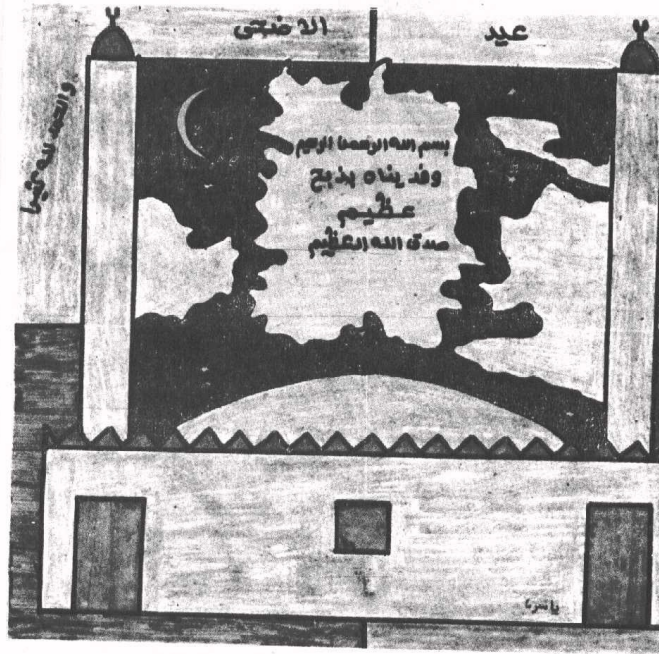 عيد الاضحى
والحمد لله كثيرا
بسم الله الرحمن الرحيم
وفديناه بذبح
عظيم
صدق الله العظيم